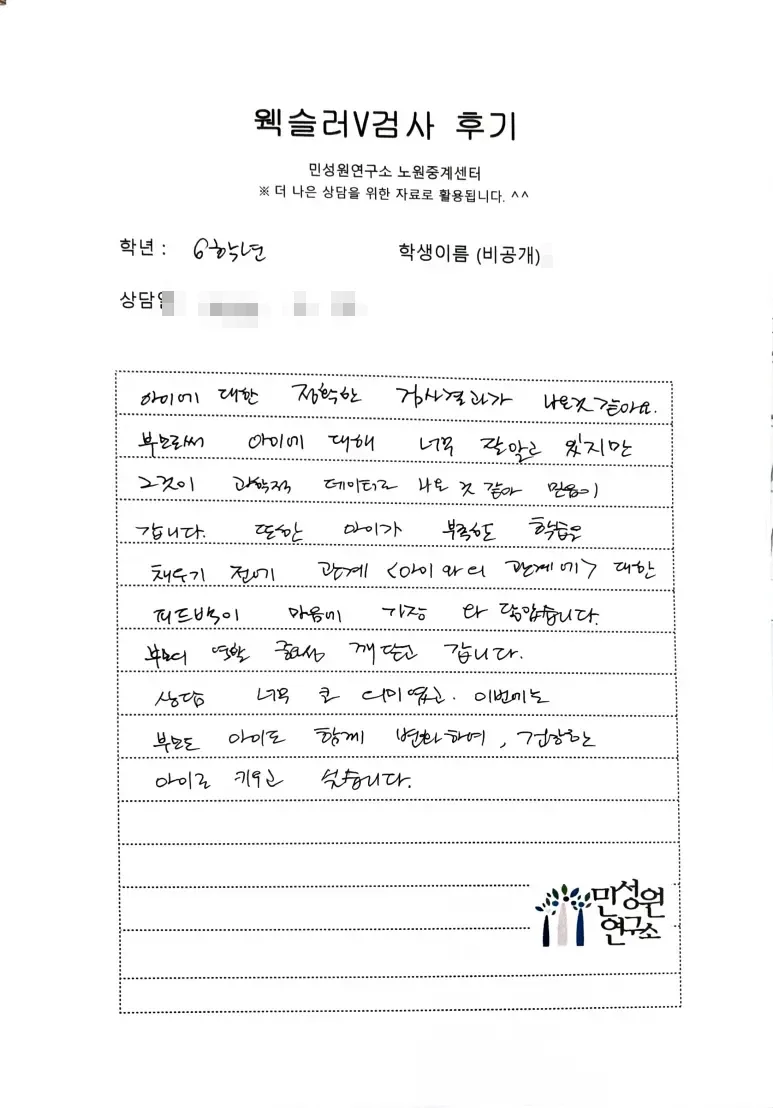 웩슬러V검사 후기
민성원연구소 노원중계센터
※ 더 나은 상담을 위한 자료로 활용됩니다. ^^
학년 : 6학년 학생이름 (비공개)
상담일
아이에 대한 정확한 검사결과가 나온것 같아요.
부모로써 아이에 대해 너무 잘알고 있지만
그것이 과학적 데이터로 나온 것 같아 믿음이
갑니다. 또한 아이가 부족한 학습을
채우기 전에 관계 <아이와의 관계에> 대한
피드백이 마음에 가장 와 닿았습니다.
부모의 역할 중요성 깨닫고 갑니다.
상담 너무 큰 의미였고. 이번에는
부모도 아이도 함께 변화하여, 건강한
아이로 키우고 싶습니다.
민성원
연구소